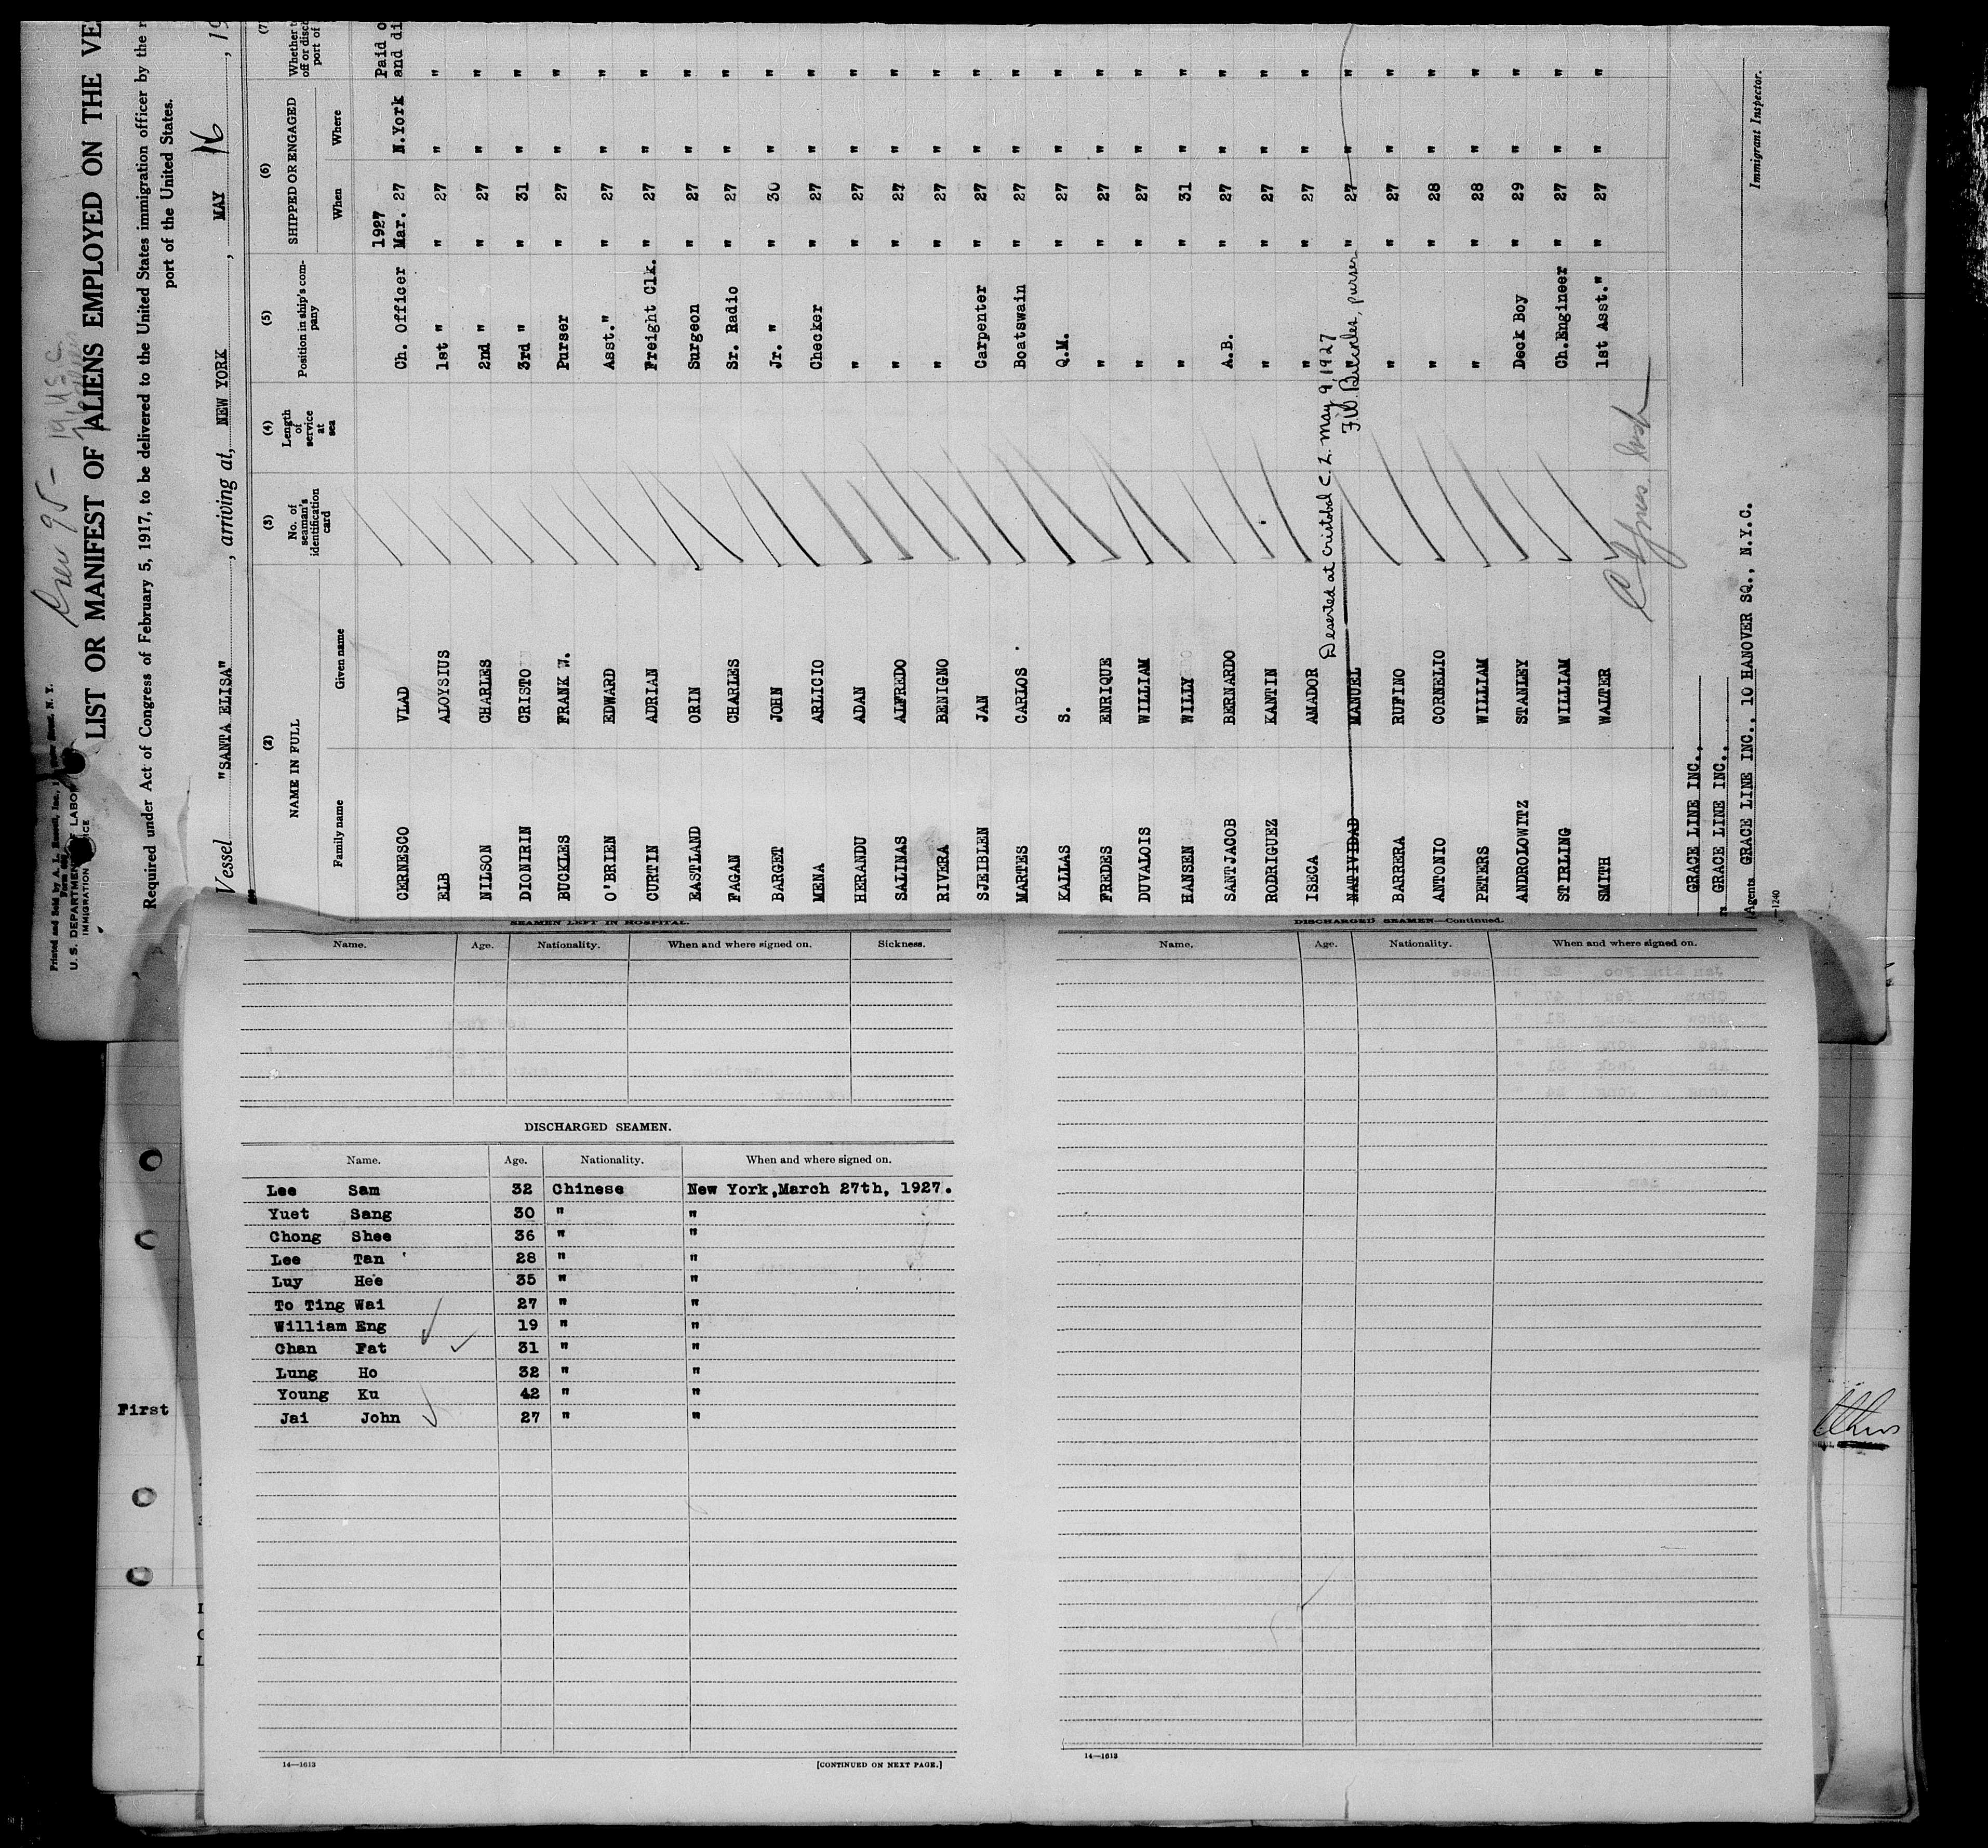 LIST OR MANIFEST OF ALIENS EMPLOYED ON THE VE
Required under Act of Congress of February 5, 1917, to be delivered to the United States immigration officer by the r
port of the United States.
U. S. DEPARTMENT OF LABOR
IMMIGRATION
Vessel "SANTA ELISA", arriving at, NEW YORK, MAY 16, 19
(2) (3) (4) (5) (6) (7)
NAME IN FULL No. of seaman's identification card Length of service at sea Position in ship's company SHIPPED OR ENGAGED
Family name Given name When Where
1927 Paid o
CERNESCO VLAD Ch. Officer Mar. 27 N.York and di
ELB ALOYSIUS 1st " " 27 " "
NILSON CHARLES 2nd " " 27 " "
DIONIRIN CRISTO 3rd " " 31 " "
BUCKLES FRANK W. Purser " 27 " "
O'BRIEN EDWARD Asst." " 27 " "
CURTIN ADRIAN Freight Clk. " 27 " "
EASTLAND ORIN Surgeon " 27 " "
FAGAN CHARLES Sr. Radio " 27 " "
BARGET JOHN Jr. " " 30 " "
MENA ARLICIO Checker " 27 " "
HERANDU ADAN " " 27 " "
SALINAS ALFREDO " " 27 " "
RIVERA BENIGNO " " 27 " "
SJEIBLEN JAN Carpenter " 27 " "
MARTES CARLOS Boatswain " 27 " "
KALLAS S. Q.M. " 27 " "
FREDES ENRIQUE " " 27 " "
DUVALOIS WILLIAM " " 27 " "
HANSEN WILLY " " 31 " "
SANTJACOB BERNARDO A.B. " 27 " "
RODRIGUEZ KANTIN " " 27 " "
ISECA AMADOR " " 27 " "
Deserted at Cristobal C. Z. May 9, 1927
NATIVIDAD MANUEL F.W. Buckles, purser " 27 " "
BARRERA RUFINO " " 27 " "
ANTONIO CORNELIO " " 28 " "
PETERS WILLIAM " " 28 " "
ANDROLOWITZ STANLEY Deck Boy " 29 " "
STIRLING WILLIAM Ch.Engineer " 27 " "
SMITH WALTER 1st Asst." " 27 " "
GRACE LINE INC.,
GRACE LINE INC.,
Agents GRACE LINE INC., 10 HANOVER SQ., N.Y.C.
Immigrant Inspector.
SEAMEN LEFT IN HOSPITAL.
Name. Age. Nationality. When and where signed on. Sickness.
DISCHARGED SEAMEN.
Name. Age. Nationality. When and where signed on.
Lee Sam 32 Chinese New York,March 27th, 1927.
Yuet Sang 30 " "
Chong Shee 36 " "
Lee Tan 28 " "
Luy Hee 35 " "
To Ting Wai 27 " "
William Eng 19 " "
Chan Fat 31 " "
Lung Ho 32 " "
Young Ku 42 " "
Jai John 27 " "
14—1613 [CONTINUED ON NEXT PAGE.]
DISCHARGED SEAMEN—Continued.
Name. Age. Nationality. When and where signed on.
14—1613
First